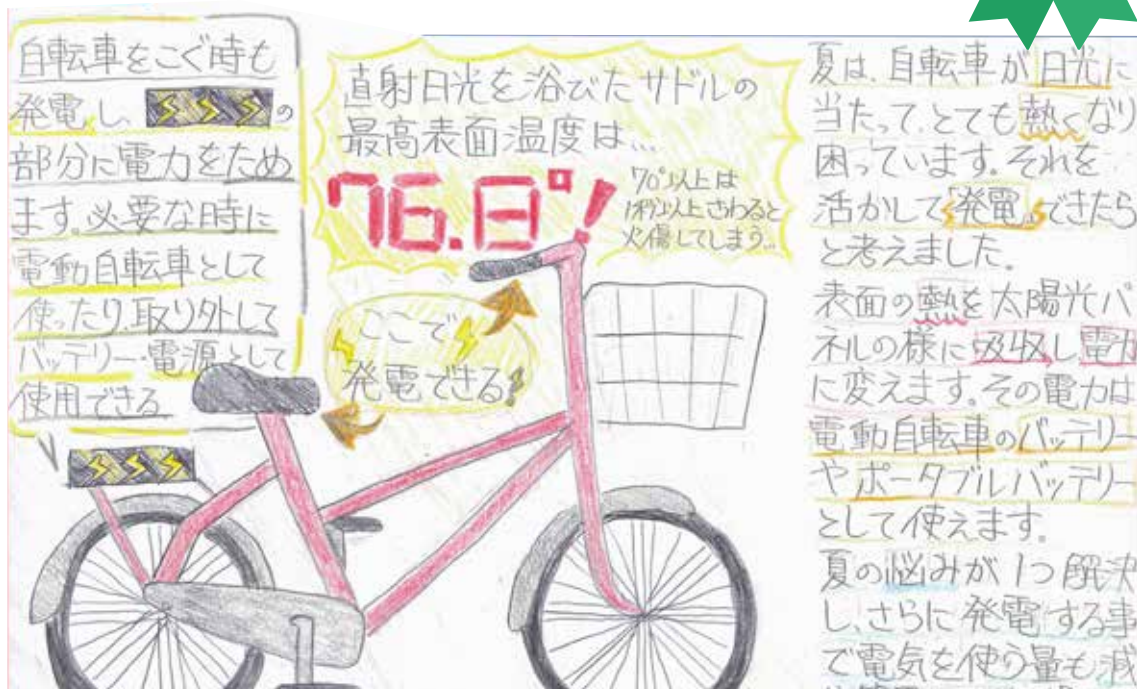 自転車をこぐ時も
発電し、の
部分に電力をため
ます。必要な時に
電動自転車として
使ったり、取り外して
バッテリー・電源として
使用できる
直射日光を浴びたサドルの
最高表面温度は…
76.8°!
70°以上は
1秒以上さわると
火傷してしまう…
ここで
発電できる
夏は、自転車が日光に
当たって、とても熱くなり
困っています。それを
活かして「発電」できたら
と考えました。
表面の熱を太陽光パ
ネルの様に吸収し、電力
に変えます。その電力は
電動自転車のバッテリー
やポータブルバッテリー
として使えます。
夏の悩みが1つ解決
し、さらに発電する事
で電気を使う量も減